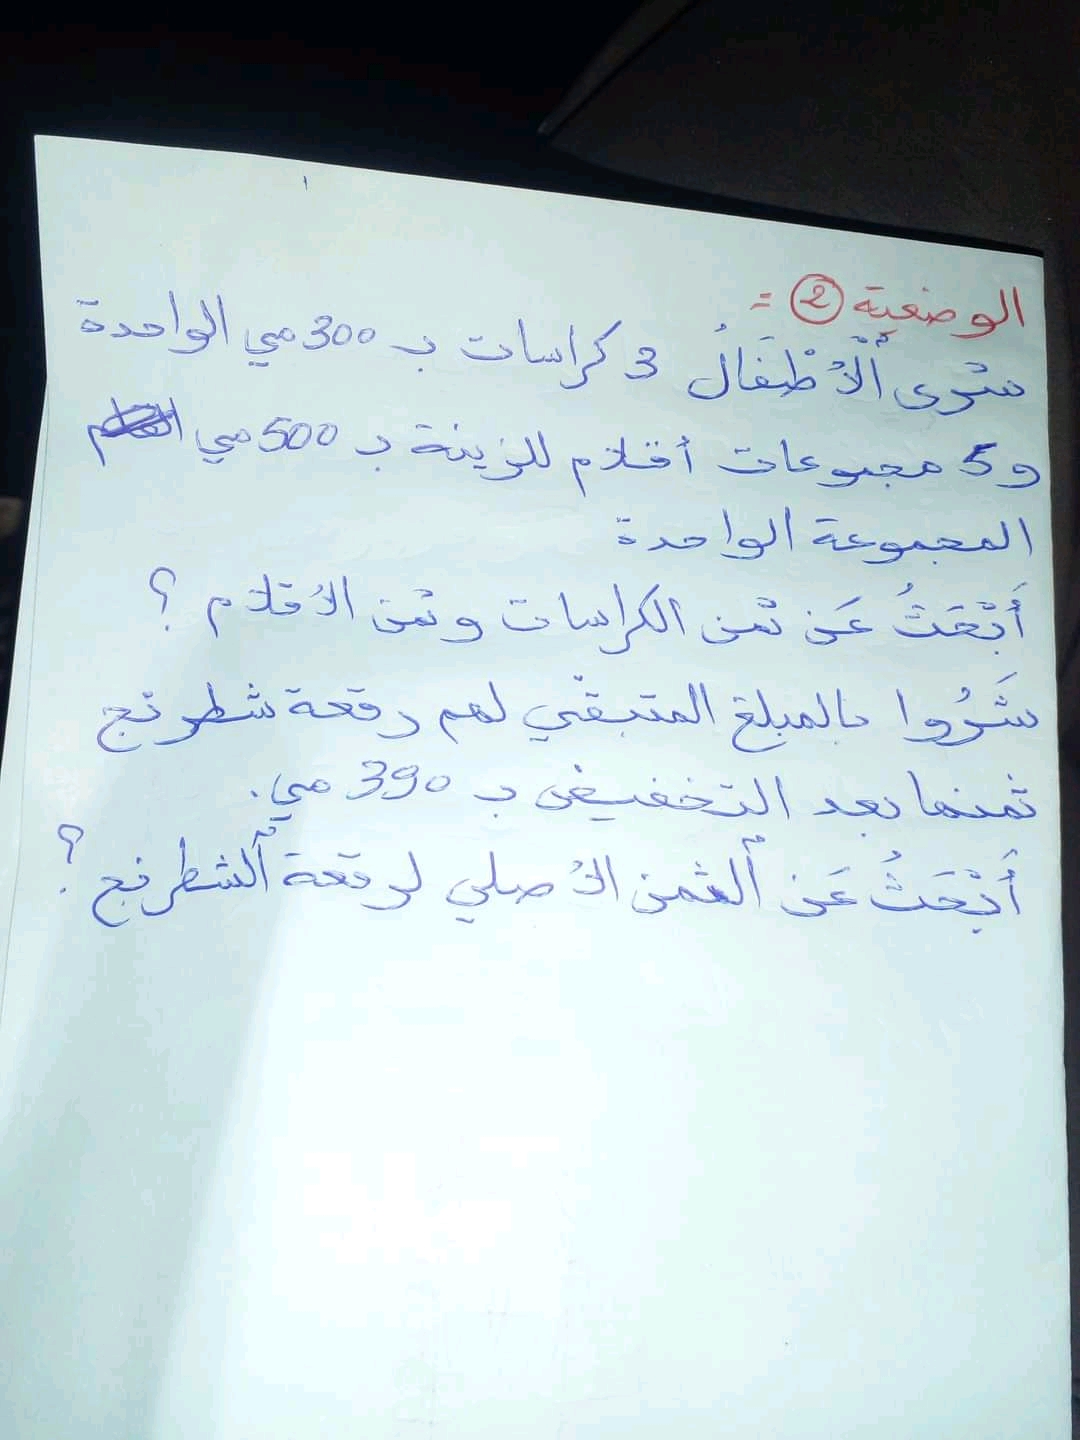 الوضعية ② =
شرى ٱلْأَطْفَالُ 3 كراسات بـ 300 مي الواحدة
و 5 مجموعات أقلام للزينة بـ 500 مي
المجموعة الواحدة
أَبْحَثُ عَن ثمن الكراسات وثمن الأقلام ؟
شَرُوا بالمبلغ المتبقي لهم رقعة شطرنج
ثمنها بعد التخفيض بـ 390 مي.
أَبْحَثُ عَن ٱلثمن الأصلي لرقعة ٱلشطرنج ؟